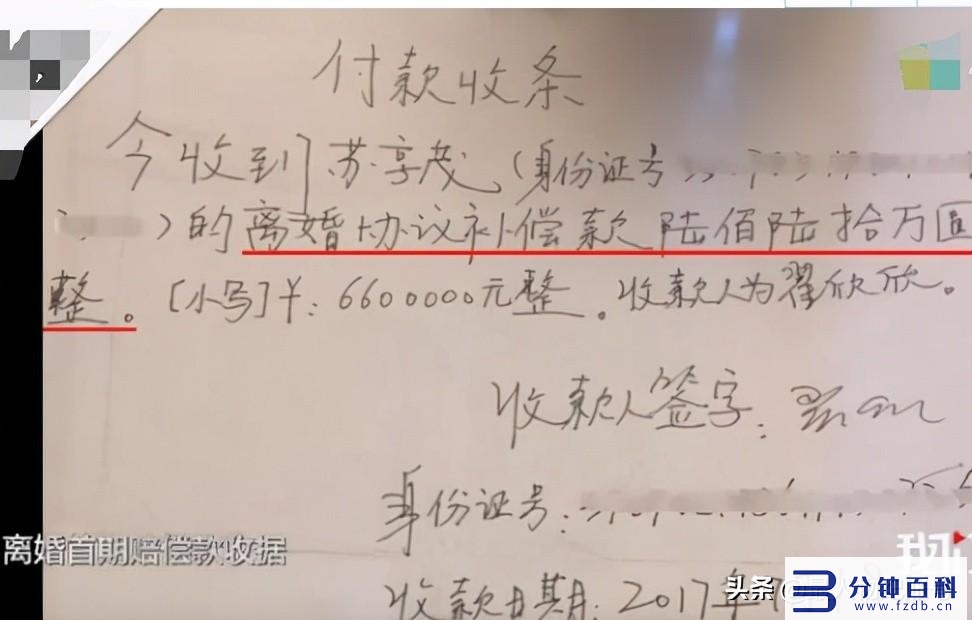 付款收条
今收到苏享茂(身份证号
)的离婚协议补偿款陆佰陆拾万圆
整。[小写]¥:6600000元整。收款人为翟欣欣。
收款人签字:
身份证号:
离婚首期赔偿款收据
收款日期:2017年
头条
3分钟百科
www.fzdb.cn